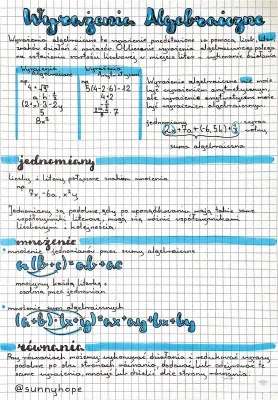 Wyrażenia Algebraiczne
Wyrażenia algebraiczne to wyrażenia przedstawione za pomocą liczb, liter,
znaków działań i nawiasów. Obliczanie wyrażenia algebraicznego polega
na ustaleniu wartości liczbowej w miejsce liter i wykonaniu działania
Wyrażenia
algebraiczne
np.
4+√x
a·b·
(2+x)·3-2y
8x²
Wyrażenia
5(4-2·6)-12
4+2
Wyrażenie algebraiczne nie może
być wyrażeniem arytmetycznym,
ale wyrażenie arytmetyczne może
być wyrażeniem algebraicznym
jednomiany
wyraz
wolny
2a+7a+(-6,5k)+3
suma algebraiczna
jednomiany
Liczby i litery połączone znakiem mnożenia
np.
7x, -6a, x²y
Jednomiany są podobne, gdy po uporządkowaniu mają takie same
współczynniki literowe, mogą się różnić współczynnikami
liczbowymi i kolejnością.
mnożenie
• mnożenie jednomianów przez sumy algebraiczne
a(b+c)=ab+ac
mnożymy każdą literkę z
osobna przez jednomian
• mnożenie sum algebraicznych
(a+b)·(x+y)=ax+ay+bx+by
równania
Przy równaniach możemy wykonywać działania i redukować wyrazy
podobne po obu stronach równania, dodawać lub odejmować te
same wyrażenia, mnożyć lub dzielić obie strony równania.
@sunnyhope